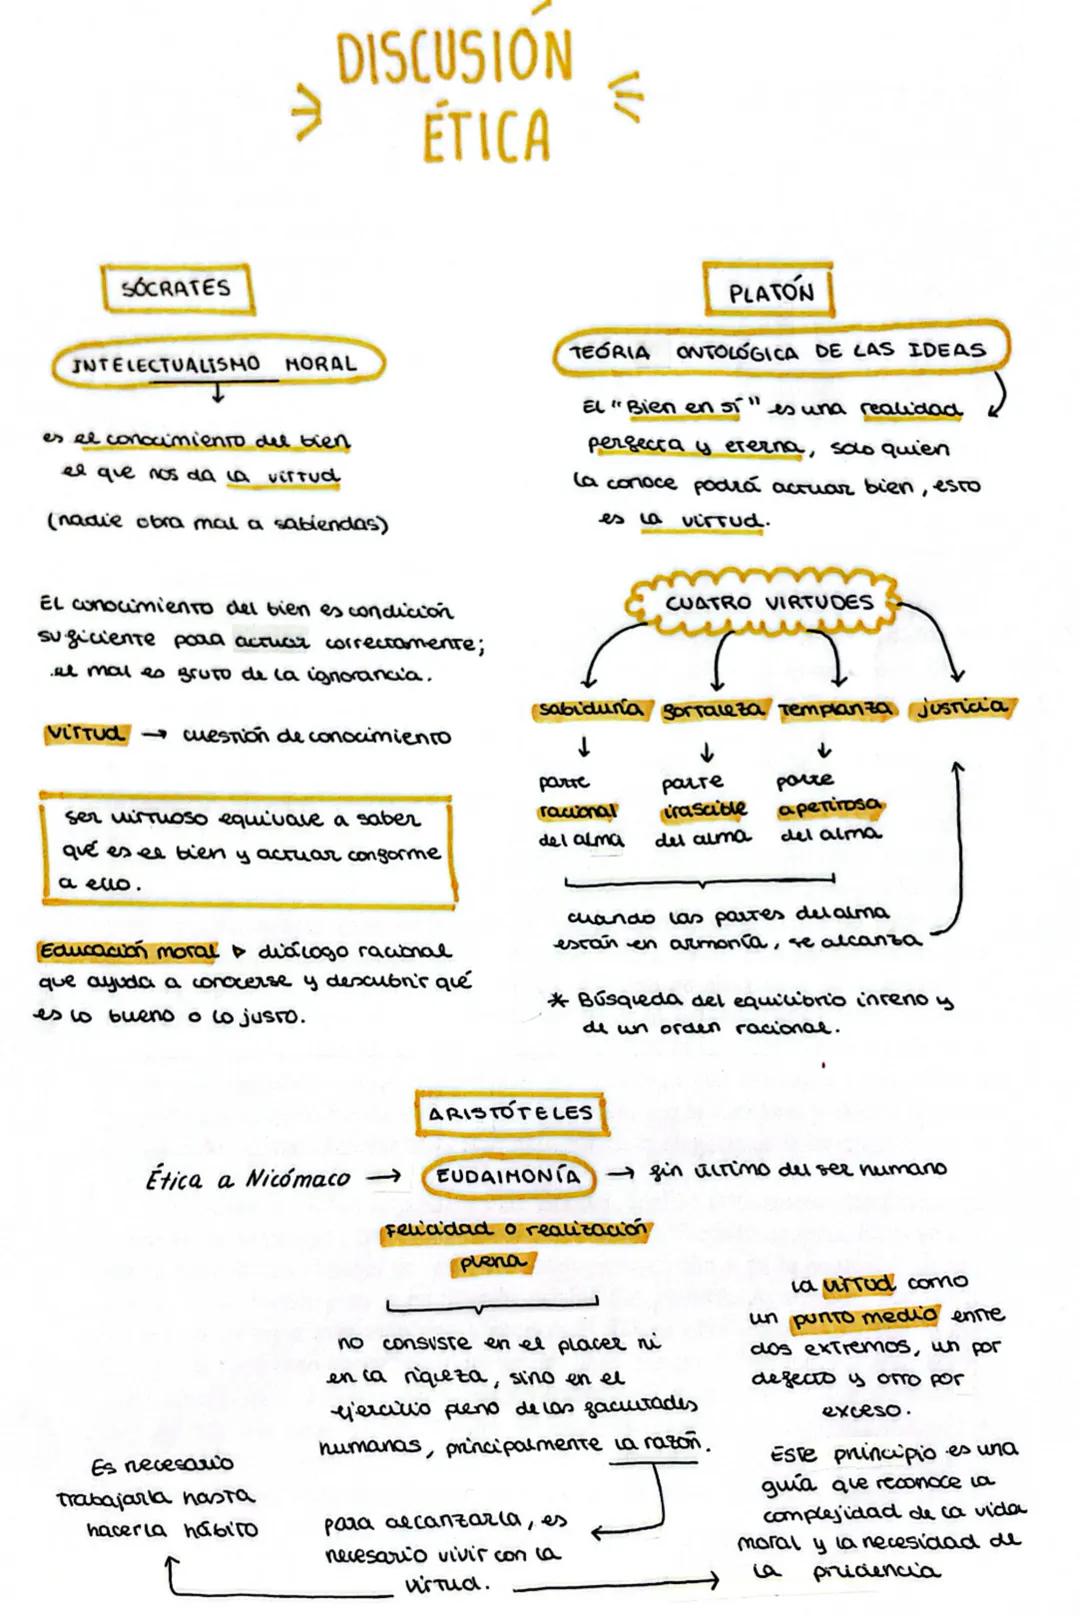 DISCUSIÓN
ÉTICA
SÓCRATES
INTELECTUALISMO MORAL
es el conocimiento del bien
el que nos da la virtud
(nadie obra mal a sabiendas)
El conocimiento del bien es condición
suficiente para actuar correctamente;
el mal es fruto de la ignorancia.
virtud → cuestión de conocimiento
ser virtuoso equivale a saber
qué es el bien y actuar conforme
a ello.
Educación moral ▷ diálogo racional
que ayuda a conocerse y descubrir qué
es lo bueno o lo justo.
PLATÓN
TEÓRIA ONTOLÓGICA DE LAS IDEAS
El "Bien en sí" es una realidad
perfecta y eterna, solo quien
la conoce podrá actuar bien, esto
es la virtud.
CUATRO VIRTUDES
sabiduría fortaleza templanza justicia
parte parte parte
racional irascible apetitosa
del alma del alma del alma
cuando las partes del alma
están en armonía, se alcanza
* Búsqueda del equilibrio inteno y
de un orden racional.
ARISTÓTELES
Ética a Nicómaco → EUDAIMONÍA → fin último del ser humano
Felicidad o realización
plena
no consiste en el placer ni
en la riqueza, sino en el
ejercicio pleno de las facultades
humanas, principalmente la razón.
para alcanzarla, es
necesario vivir con la
virtud.
Es necesario
trabajarla hasta
hacerla hábito
la virtud como
un punto medio entre
dos extremos, un por
defecto y otro por
exceso.
Este principio es una
guía que reconoce la
complejidad de la vida
moral y la necesidad de
la prudencia